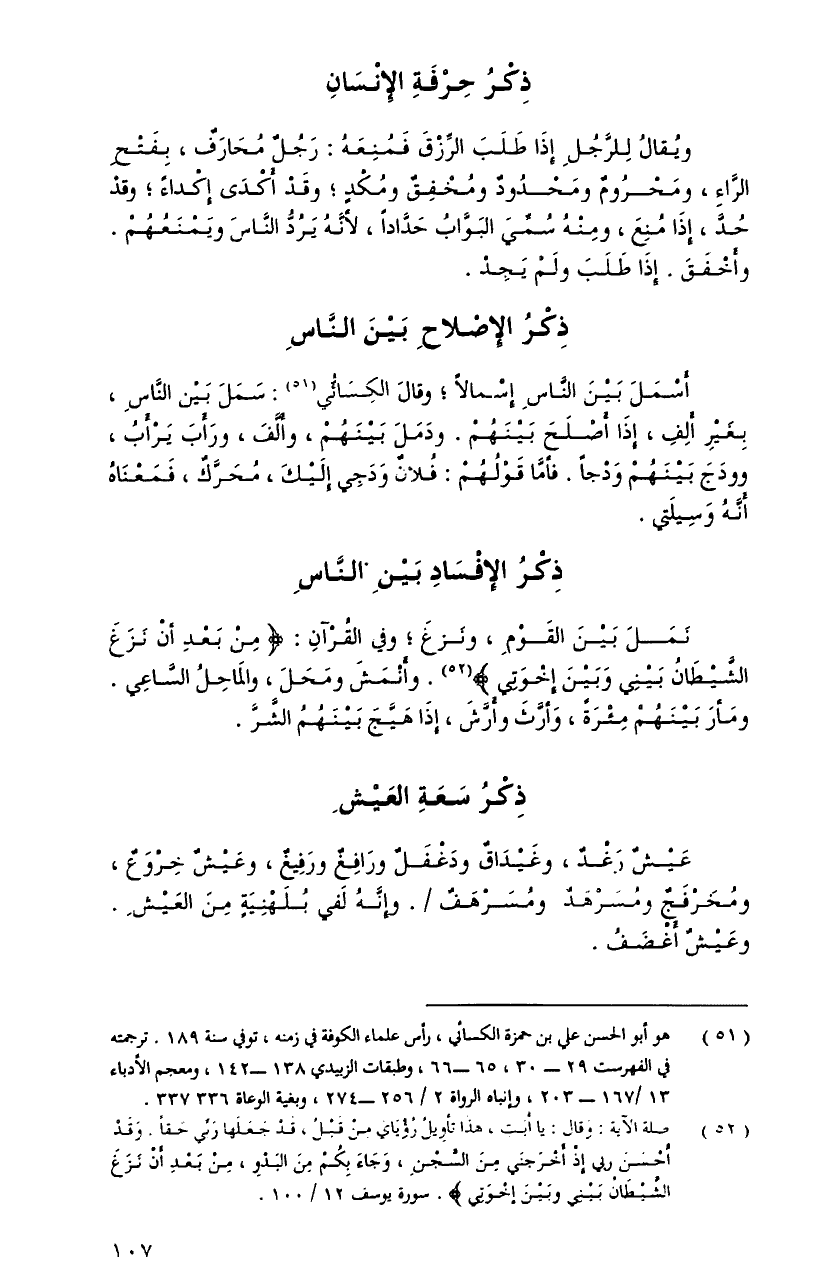 ذِكْرُ حِرْفَةِ الإِنْسَانِ
ويُقالُ لِلرَّجُلِ إِذَا طَلَبَ الرِّزْقَ فَمُنِعَهُ : رَجُلٌ مُحَارَفٌ ، بِفَتْحِ
الرَّاءِ ، ومَحْرُومٌ ومَحْدُودٌ ومُخْفِقٌ ومُكْدٍ ؛ وقَدْ أَكْدَى إِكْداءً ؛ وقَدْ
حُدَّ ، إِذَا مُنِعَ ، ومِنْهُ سُمِّيَ البَوَّابُ حَدَّاداً ، لأَنَّهُ يَرُدُّ النَّاسَ ويَمْنَعُهُمْ .
وأَخْفَقَ . إِذَا طَلَبَ ولَمْ يَجِدْ .
ذِكْرُ الإِصْلاحِ بَيْنَ النَّاسِ
أَسْمَلَ بَيْنَ النَّاسِ إِسْمالاً ؛ وقالَ الكِسَائي(٥١) : سَمَلَ بَيْن النَّاسِ ،
بِغَيْرِ أَلِفٍ ، إِذَا أَصْلَحَ بَيْنَهُمْ . ودَمَلَ بَيْنَهُمْ ، وأَلَّفَ ، ورَأَبَ يَرْأَبُ ،
وودَجَ بَيْنَهُمْ وَدْجاً . فأمَّا قَوْلُهُمْ : فُلانٌ وَدَجِي إِلَيْكَ ، مُحَرَّكٌ ، فَمَعْنَاهُ
أنَّهُ وَسِيلَتِي .
ذِكْرُ الإِفْسَادِ بَيْنِ النَّاسِ
نَمَلَ بَيْنَ القَوْمِ ، ونَزغَ ؛ وفي القُرْآنِ : ﴿ مِنْ بَعْدِ أنْ نَزَغَ
الشَّيْطَانُ بَيْنِي وَبَيْنَ إِخْوَتِي ﴾(٥٢) . وأَنْمَشَ ومَحَلَ ، والمَاحِلُ السَّاعِي .
ومَأرَ بَيْنَهُمْ مِئْرَةً ، وَأرَّثَ وأَرَّشَ ، إِذَا هَيَّجَ بَيْنَهُمُ الشَّرَّ .
ذِكْرُ سَعَةِ العَيْشِ
عَيْشٌ رَغْدٌ ، وغَيْدَاقٌ ودَغْفَلٌ ورَافِغٌ ورَفِيغٌ ، وعَيْشٌ خِرْوَعٌ ،
ومُخَرْفَجٌ ومُسَرْهَدٌ ومُسَرْهَفٌ / . وإِنَّهُ لَفي بُلَهْنِيَةٍ مِنَ العَيْشِ .
وعَيْشٌ أَغْضَفُ .
( ٥١ ) هو أبو الحسن علي بن حمزة الكسائي ، رأس علماء الكوفة في زمنه ، توفي سنة ١٨٩ . ترجمته
في الفهرست ٢٩ — ٣٠ ، ٦٥ —٦٦ ، وطبقات الزبيدي ١٣٨ —١٤٢ ، ومعجم الأدباء
١٣ /١٦٧ — ٢٠٣ ، وإنباه الرواة ٢ / ٢٥٦ —٢٧٤ ، وبغية الوعاة ٣٣٦ ٣٣٧
( ٥٢ ) صلة الآية : وقال : يا أبت ، هذا تأويلُ رُؤْيَايَ مِنْ قَبْلُ ، قَدْ جَعَلَها رَبِّي حَقاً . وَقَدْ
أَحْسَنَ ربي إِذْ أخْرَجَني مِنَ السِّجْنِ ، وَجَاءَ بِكُمْ مِنَ البَدْوِ ، مِنْ بَعْدِ أَنْ نَزَغَ
الشَّيْطَانُ بَيْنِي وبَيْنَ إِخْوَتِي ﴾ . سورة يوسف ١٢ / ١٠٠ .
١٠٧